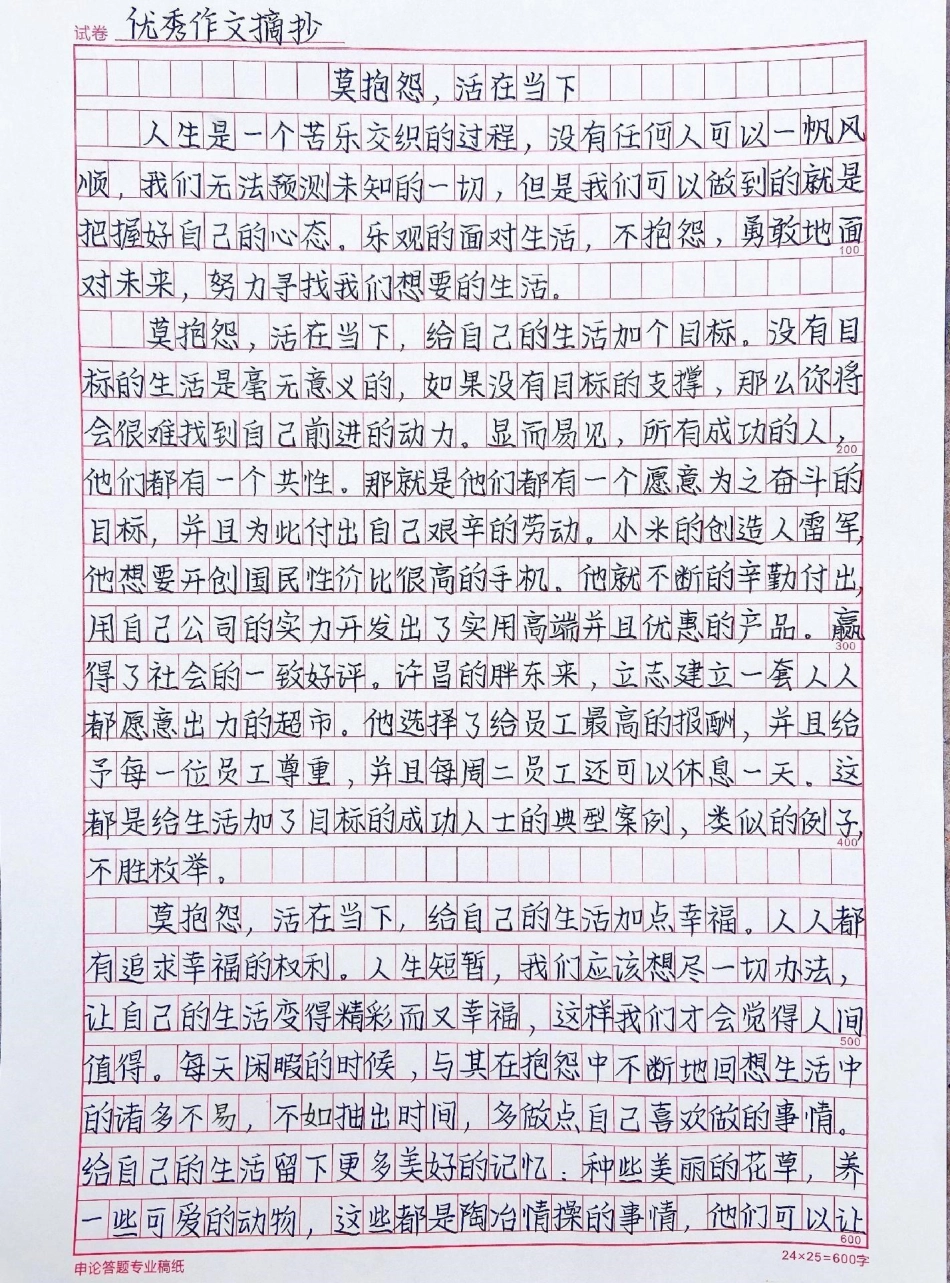 试卷 优秀作文摘抄
莫抱怨，活在当下
人生是一个苦乐交织的过程，没有任何人可以一帆风
顺，我们无法预测未知的一切，但是我们可以做到的就是
把握好自己的心态。乐观的面对生活，不抱怨，勇敢地面
100
对未来，努力寻找我们想要的生活。
莫抱怨，活在当下，给自己的生活加个目标。没有目
标的生活是毫无意义的，如果没有目标的支撑，那么你将
会很难找到自己前进的动力。显而易见，所有成功的人，
200
他们都有一个共性。那就是他们都有一个愿意为之奋斗的
目标，并且为此付出自己艰辛的劳动。小米的创造人雷军，
他想要开创国民性价比很高的手机。他就不断的辛勤付出，
用自己公司的实力开发出了实用高端并且优惠的产品。赢
300
得了社会的一致好评。许昌的胖东来，立志建立一套人人
都愿意出力的超市。他选择了给员工最高的报酬，并且给
予每一位员工尊重，并且每周二员工还可以休息一天。这
都是给生活加了目标的成功人士的典型案例，类似的例子，
400
不胜枚举。
莫抱怨，活在当下，给自己的生活加点幸福。人人都
有追求幸福的权利。人生短暂，我们应该想尽一切办法，
让自己的生活变得精彩而又幸福，这样我们才会觉得人间
500
值得。每天闲暇的时候，与其在抱怨中不断地回想生活中
的诸多不易，不如抽出时间，多做点自己喜欢做的事情。
给自己的生活留下更多美好的记忆：种些美丽的花草，养
一些可爱的动物，这些都是陶冶情操的事情，他们可以让
600
申论答题专业稿纸
24×25=600字